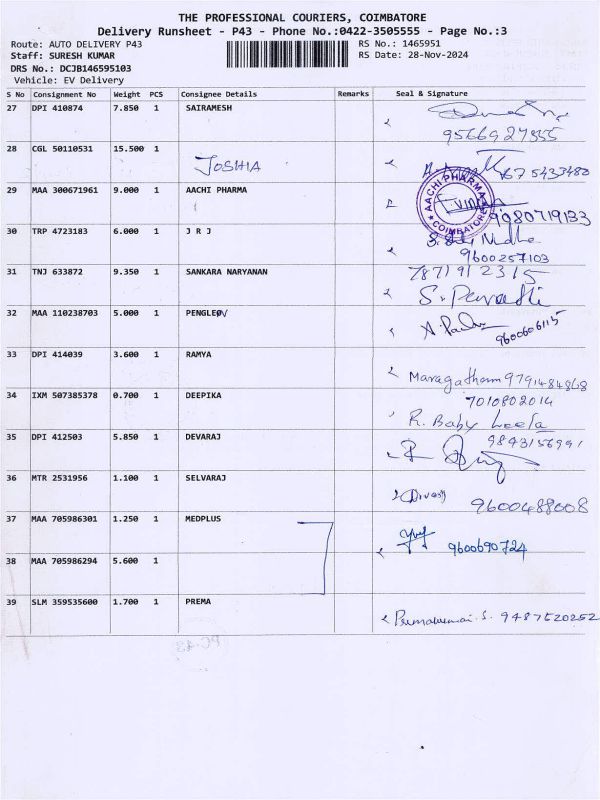 THE PROFESSIONAL COURIERS, COIMBATORE
Delivery Runsheet - P43 - Phone No.:0422-3505555 - Page No.:3
Route: AUTO DELIVERY P43 RS No.: 1465951
Staff: SURESH KUMAR RS Date: 28-Nov-2024
DRS No.: DCJB14659S103
Vehicle: EV Delivery
S No Consignment No Weight PCS Consignee Details Remarks Seal & Signature
27 DPI 410874 7.850 1 SAIRAMESH
9566927355
28 CGL 50110531 15.500 1
JOSHIA
29 MAA 300671961 9.000 1 AACHI PHARMA
AACHI PHARMA COIMBATORE
9080719133
30 TRP 4723183 6.000 1 J R J
9600257103
31 TNJ 633872 9.350 1 SANKARA NARYANAN
7871912315
32 MAA 110238703 5.000 1 PENGLEON
9600606115
33 DPI 414039 3.600 1 RAMYA
Maragatham 9791484868
34 IXM 507385378 0.700 1 DEEPIKA
7010802014
R. Baby Leela
35 DPI 412503 5.850 1 DEVARAJ
9843156991
36 MTR 2531956 1.100 1 SELVARAJ
9600488008
37 MAA 705986301 1.250 1 MEDPLUS
9600690724
38 MAA 705986294 5.600 1
39 SLM 359535600 1.700 1 PREMA
9487520252